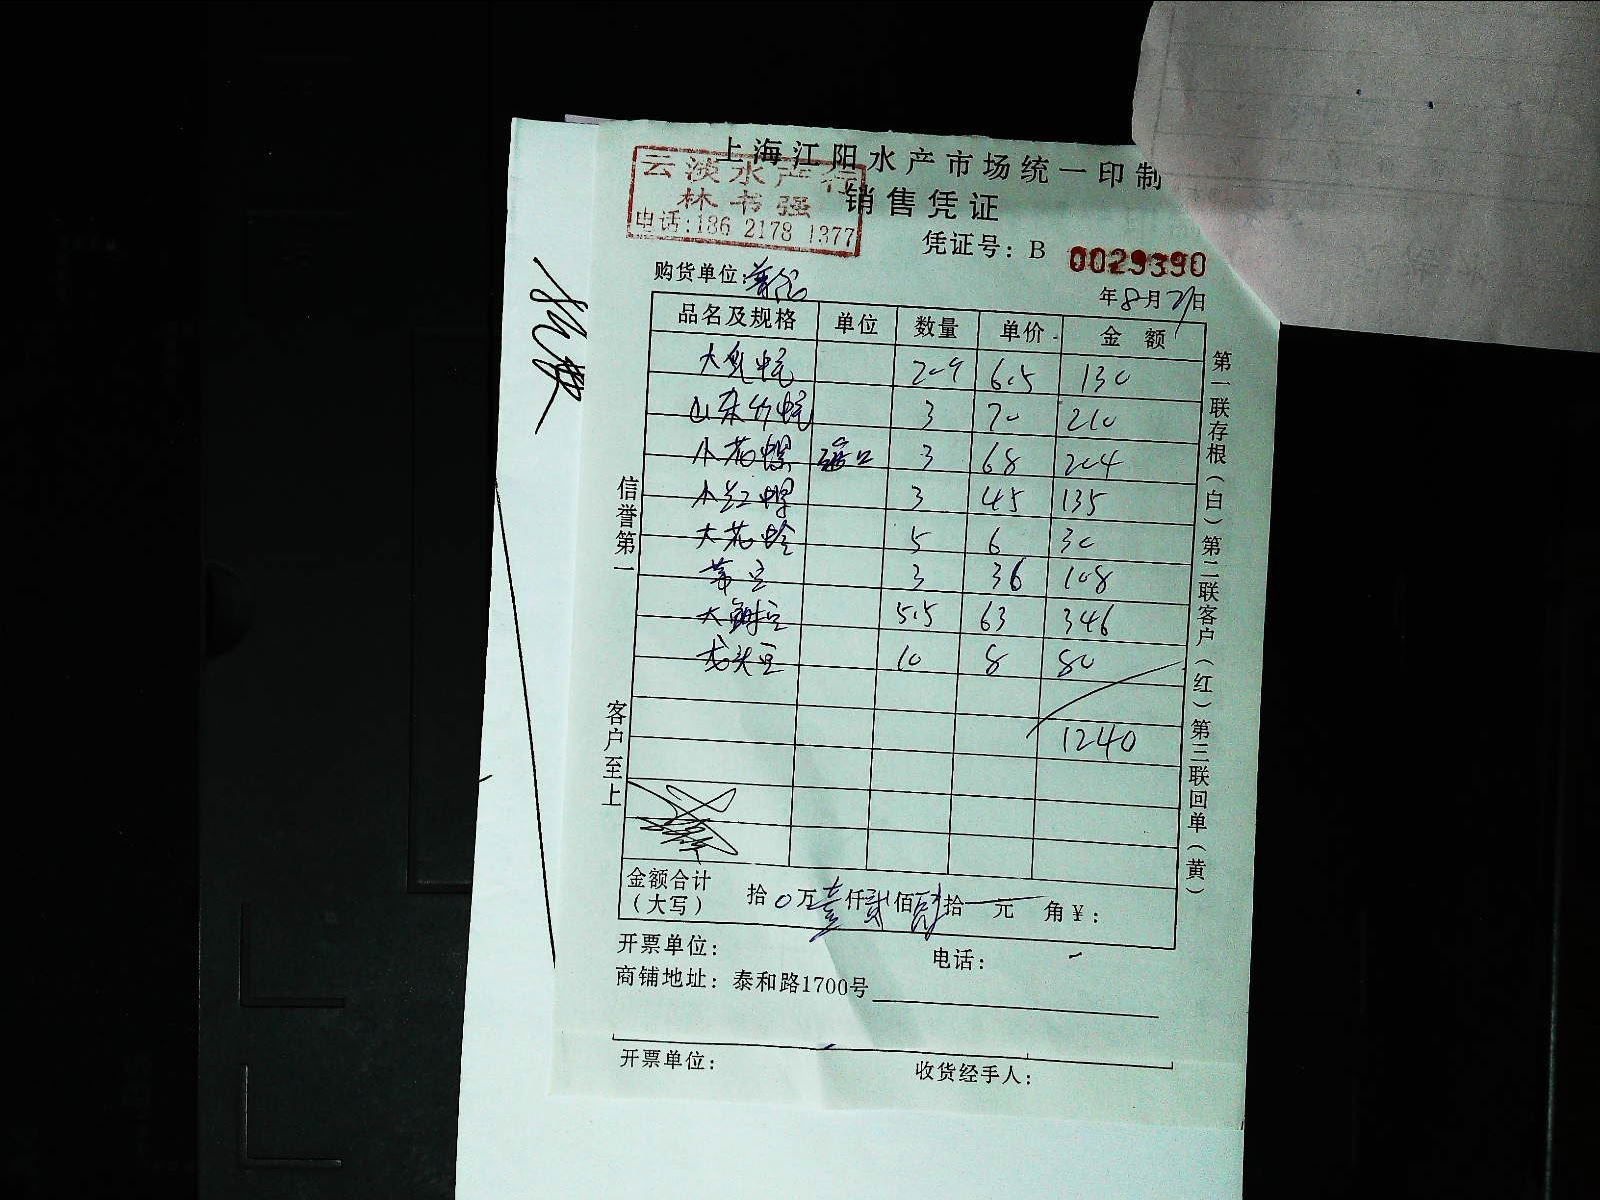 上海江阳水产市场统一印制
云淡水产行
林书强
电话:186 2178 1377
销售凭证
凭证号: B 0029390
购货单位:
年8月21日
品名及规格 单位 数量 单价 金额
大 20.9 6.5 130
山东竹蛏 3 70 210
小花螺 3 68 204
小红螺 3 45 135
大花蛤 5 6 30
3 36 108
大 5.5 63 346
龙头 10 8 80
1240
金额合计
(大写)
拾0万壹仟贰佰肆拾一元 角¥:
开票单位: 电话:
商铺地址: 泰和路1700号
开票单位: 收货经手人:
信誉第一
客户至上
第一联存根(白)第二联客户(红)第三联回单(黄)